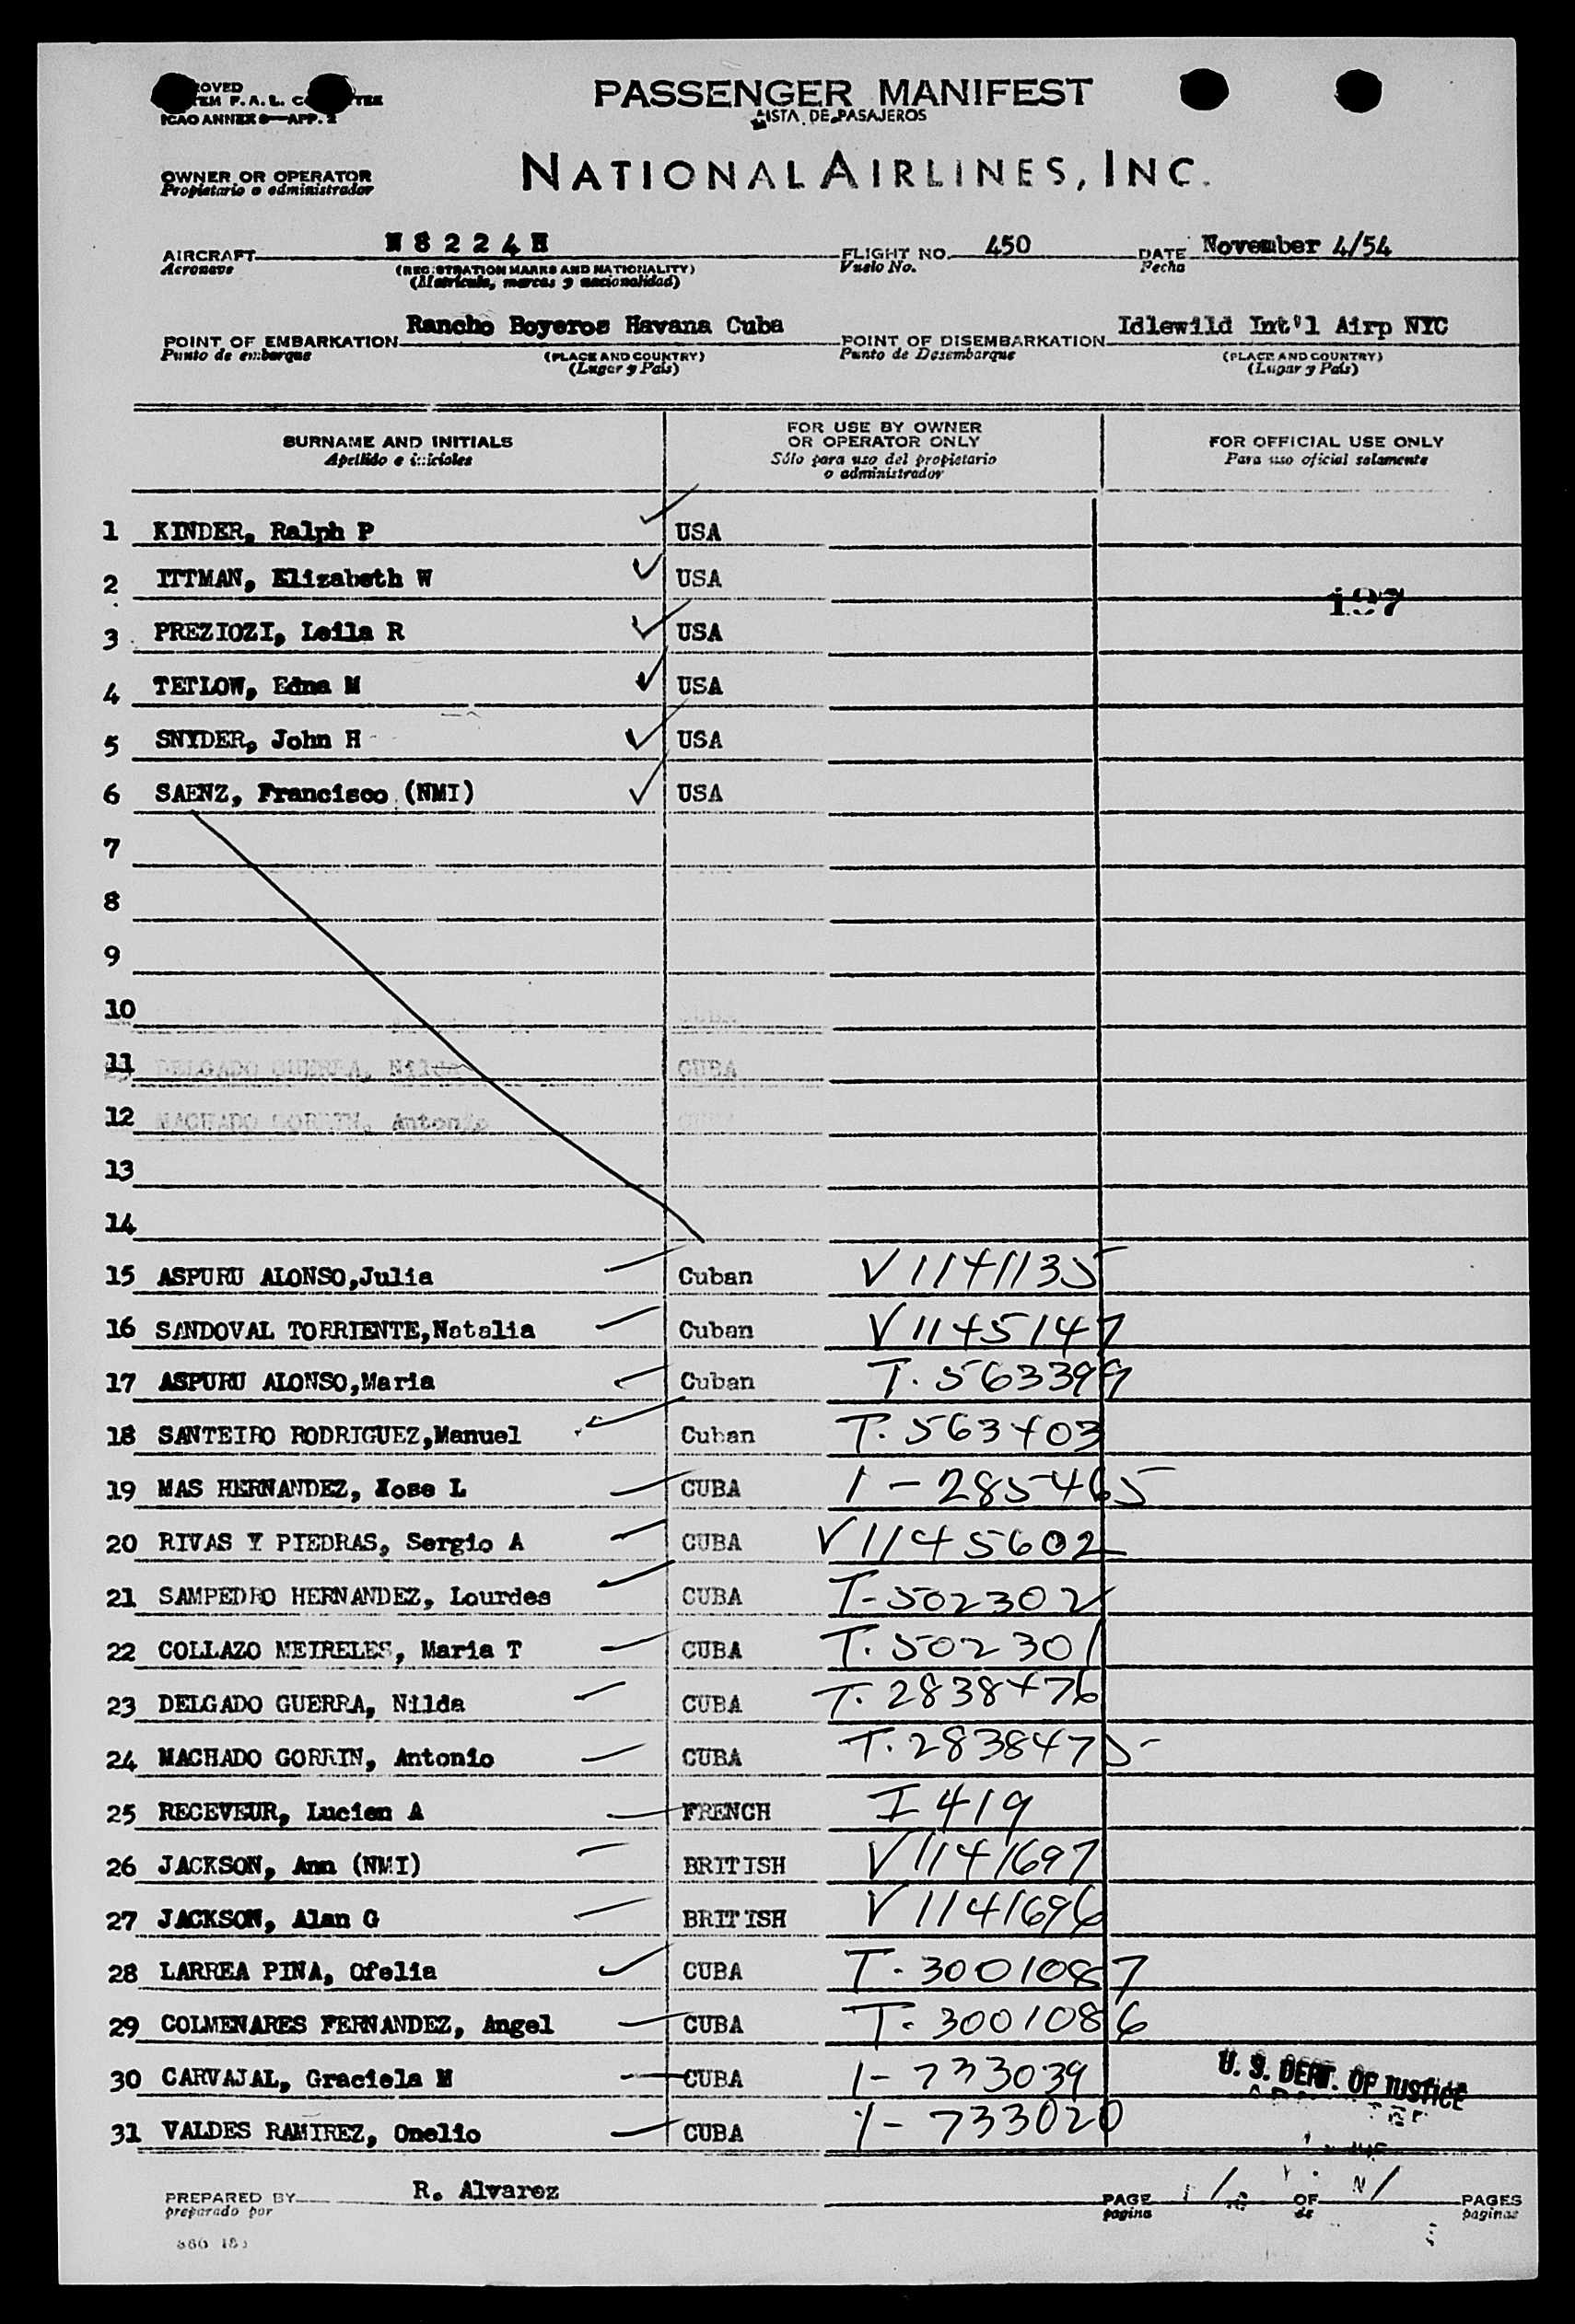 PASSENGER MANIFEST
LISTA DE PASAJEROS
ICAO ANNEX 9—APP. 2
NATIONAL AIRLINES, INC.
OWNER OR OPERATOR
Propietario o administrador
AIRCRAFT N8224H FLIGHT NO. 450 DATE November 4/54
Aeronave (REGISTRATION MARKS AND NATIONALITY) Vuelo No. Fecha
(Matricula, marcas y nacionalidad)
POINT OF EMBARKATION Rancho Boyeros Havana Cuba POINT OF DISEMBARKATION Idlewild Int'l Airp NYC
Punto de embarque (PLACE AND COUNTRY) Punto de Desembarque (PLACE AND COUNTRY)
(Lugar y País) (Lugar y País)
SURNAME AND INITIALS FOR USE BY OWNER OR OPERATOR ONLY FOR OFFICIAL USE ONLY
Apellido e iniciales Sólo para uso del propietario o administrador Para uso oficial solamente
1 KINDER, Ralph P USA
2 ITTMAN, Elizabeth W USA
197
3 PREZIOZI, Leila R USA
4 TETLOW, Edna M USA
5 SNYDER, John H USA
6 SAENZ, Francisco (NMI) USA
7
8
9
10
11 DELGADO GUERRA, Nilda CUBA
12 MACHADO GORRIN, Antonio
13
14
15 ASPURU ALONSO,Julia Cuban V1141135
16 SANDOVAL TORRIENTE,Natalia Cuban V1145147
17 ASPURU ALONSO,Maria Cuban T. 563399
18 SANTEIRO RODRIGUEZ,Manuel Cuban T. 563403
19 MAS HERNANDEZ, Jose L CUBA 1-285465
20 RIVAS Y PIEDRAS, Sergio A CUBA V1145602
21 SAMPEDRO HERNANDEZ, Lourdes CUBA T-502302
22 COLLAZO MEIRELES, Maria T CUBA T. 502301
23 DELGADO GUERRA, Nilda CUBA T. 2838476
24 MACHADO GORRIN, Antonio CUBA T. 2838475
25 RECEVEUR, Lucien A FRENCH I 419
26 JACKSON, Ann (NMI) BRITISH V1141697
27 JACKSON, Alan G BRITISH V1141696
28 LARREA PINA, Ofelia CUBA T. 3001087
29 COLMENARES FERNANDEZ, Angel CUBA T. 3001086
30 CARVAJAL, Graciela M CUBA 1-733039
U. S. DEPT. OF JUSTICE
31 VALDES RAMIREZ, Onelio CUBA 1-733020
PREPARED BY R. Alvarez PAGE OF PAGES
preparado por pagina de paginas